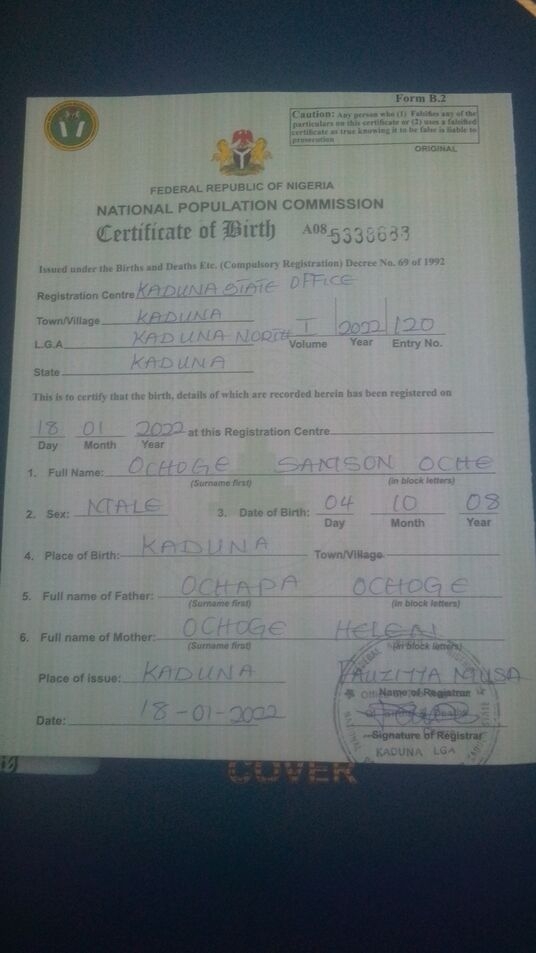 Form B.2
Caution: Any person who (1) Falsifies any of the
particulars on this certificate or (2) uses a falsified
certificate as true knowing it to be false is liable to
prosecution
ORIGINAL
FEDERAL REPUBLIC OF NIGERIA
NATIONAL POPULATION COMMISSION
Certificate of Birth A08
Issued under the Births and Deaths Etc. (Compulsory Registration) Decree No. 69 of 1992
Registration Centre KADUNA STATE OFFICE
Town/Village KADUNA
L.G.A KADUNA NORTH I 2022 120
Volume Year Entry No.
State KADUNA
This is to certify that the birth, details of which are recorded herein has been registered on
18 01 2022 at this Registration Centre
Day Month Year
1. Full Name: OCHOGE SAMSON OCHE
(Surname first) (in block letters)
2. Sex: MALE 3. Date of Birth: 04 10 08
Day Month Year
4. Place of Birth: KADUNA Town/Village
5. Full name of Father: OCHAPA OCHOGE
(Surname first) (in block letters)
6. Full name of Mother: OCHOGE HELEN
(Surname first) (in block letters)
Place of issue: KADUNA FAUZIYYA MUSA
Name of Registrar
Date: 18-01-2022
Signature of Registrar
KADUNA LGA
COVER